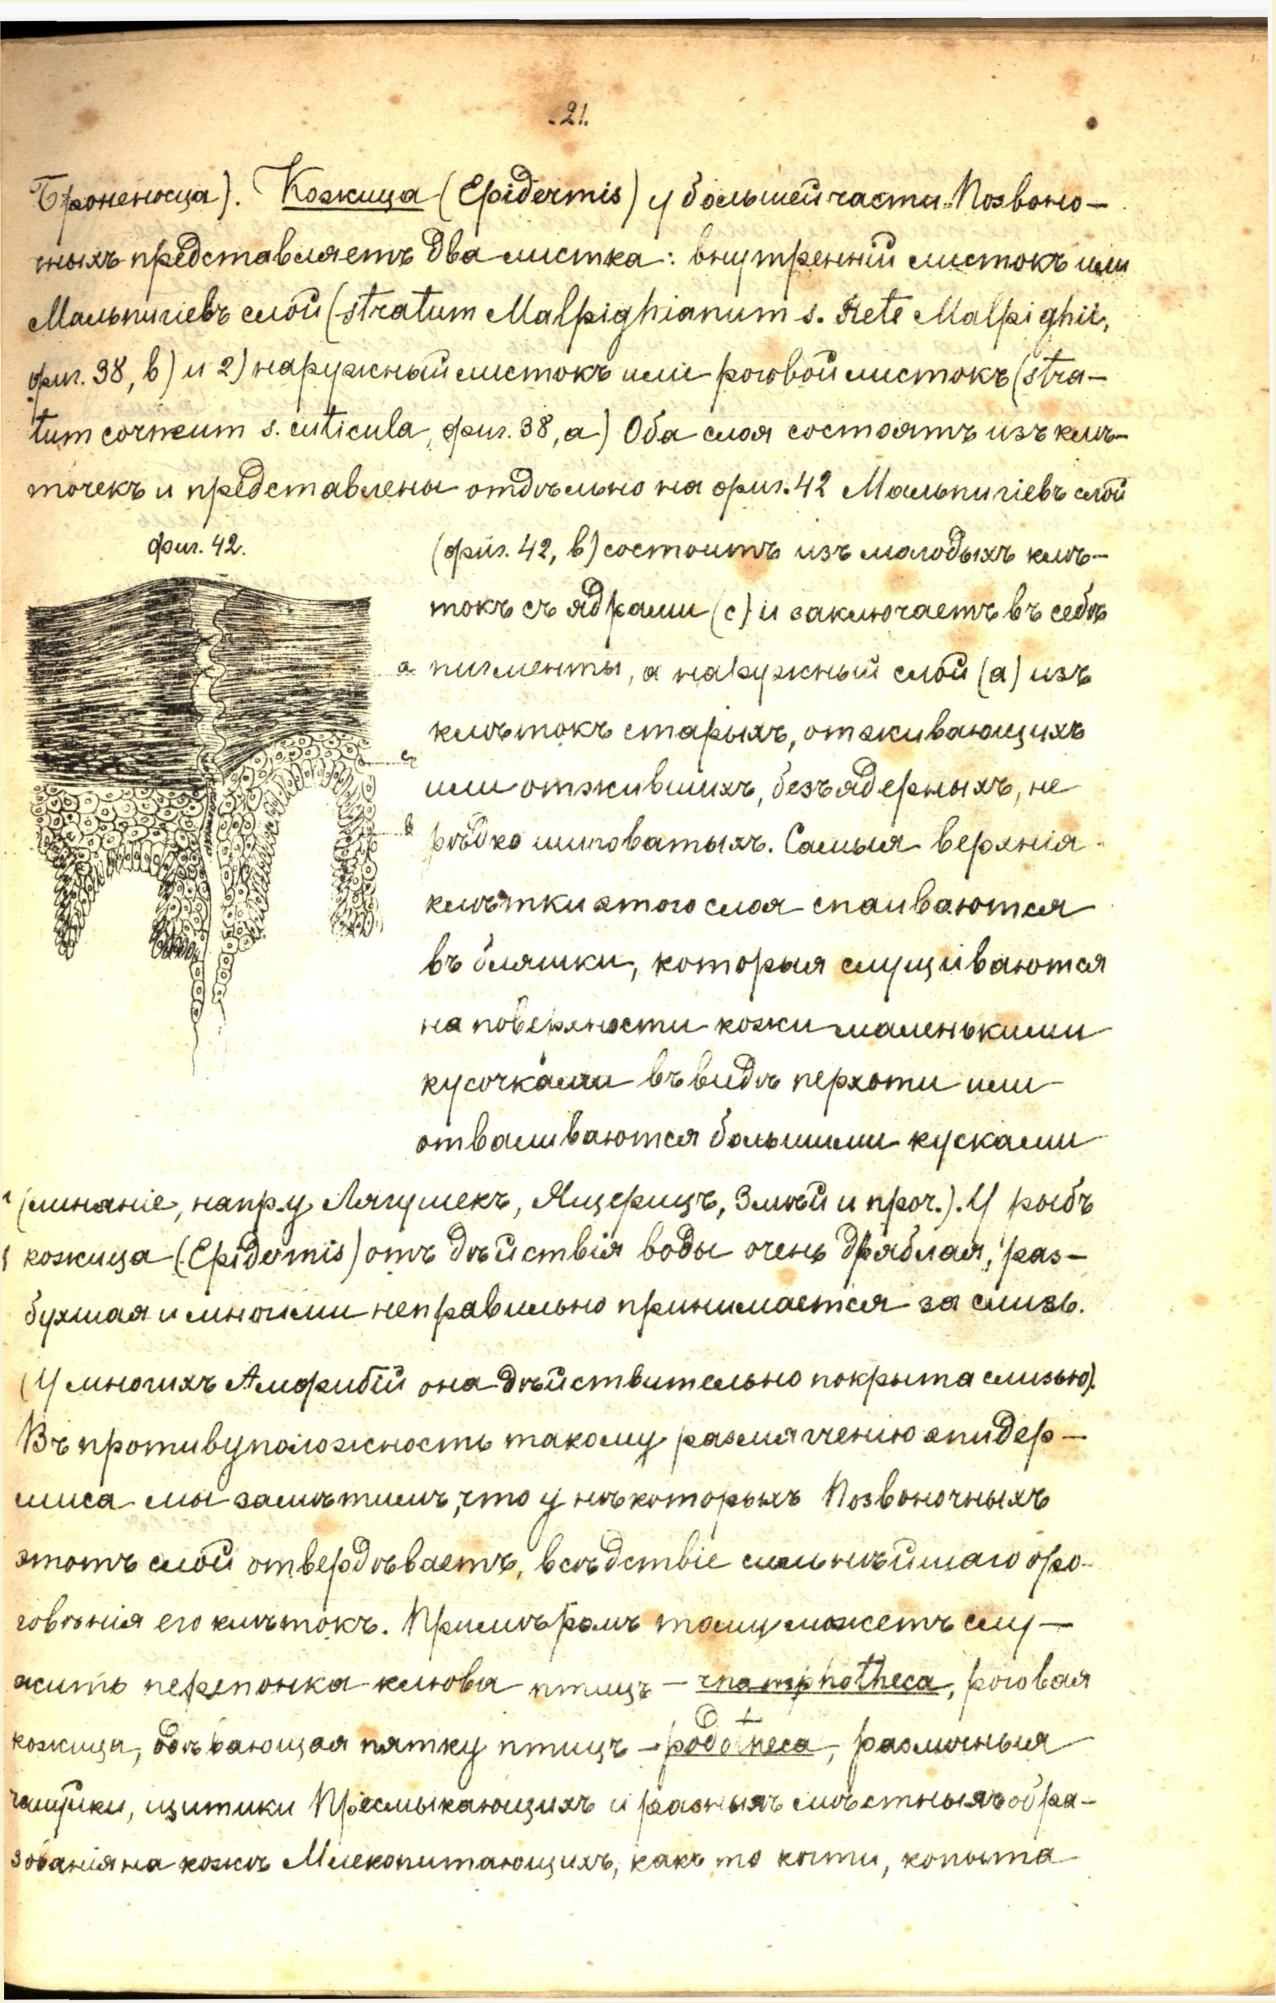 .21.
Броненосца). Кожица (Epidermis) у большей части Позвоно-
чныхъ представляетъ два листка: внутренній листокъ или
Мальпигіевъ слой (stratum Malpighianum s. Rete Malpighii,
фиг. 38, в) и 2) наружный листокъ или роговой листокъ (stra-
tum corneum s. cuticula, фиг. 38, а) Оба слоя состоятъ изъ клѣ-
точекъ и представлены отдѣльно на фиг. 42 Мальпигіевъ слой
фиг. 42.
(фиг. 42, в) состоитъ изъ молодыхъ клѣ-
токъ съ ядрами (с) и заключаетъ въ себѣ
а
пигменты, а наружный слой (а) изъ
клѣтокъ старыхъ, отживающихъ
с
или отжившихъ, безъядерныхъ, не
в
рѣдко шиповатыхъ. Самыя верхнія
клѣтки этого слоя спаиваются
въ бляшки, которыя слущиваются
на поверхности кожи маленькими
кусочками въ видѣ перхоти или
отваливаются большими кусками
(линяніе, напр. у Лягушекъ, Ящерицъ, Змѣй и проч.). У рыбъ
кожица (Epidermis) отъ дѣйствія воды очень дряблая, раз-
бухшая и многими неправильно принимается за слизь.
(У многихъ Амфибій она дѣйствительно покрыта слизью).
Въ противуположность такому размягченію эпидер-
миса мы замѣтимъ, что у нѣкоторыхъ Позвоночныхъ
этотъ слой отвердѣваетъ, вслѣдствіе сильнѣйшаго оро-
говѣнія его клѣтокъ. Примѣромъ тому можетъ слу-
жить перепонка клюва птицъ - rnamphotheca, роговая
кожица, одѣвающая пятку птицъ - podotheca, различныя
чешуйки, щитики Пресмыкающихъ и разныя мѣстныя обра-
зованія на кожѣ Млекопитающихъ, какъ то когти, копыта